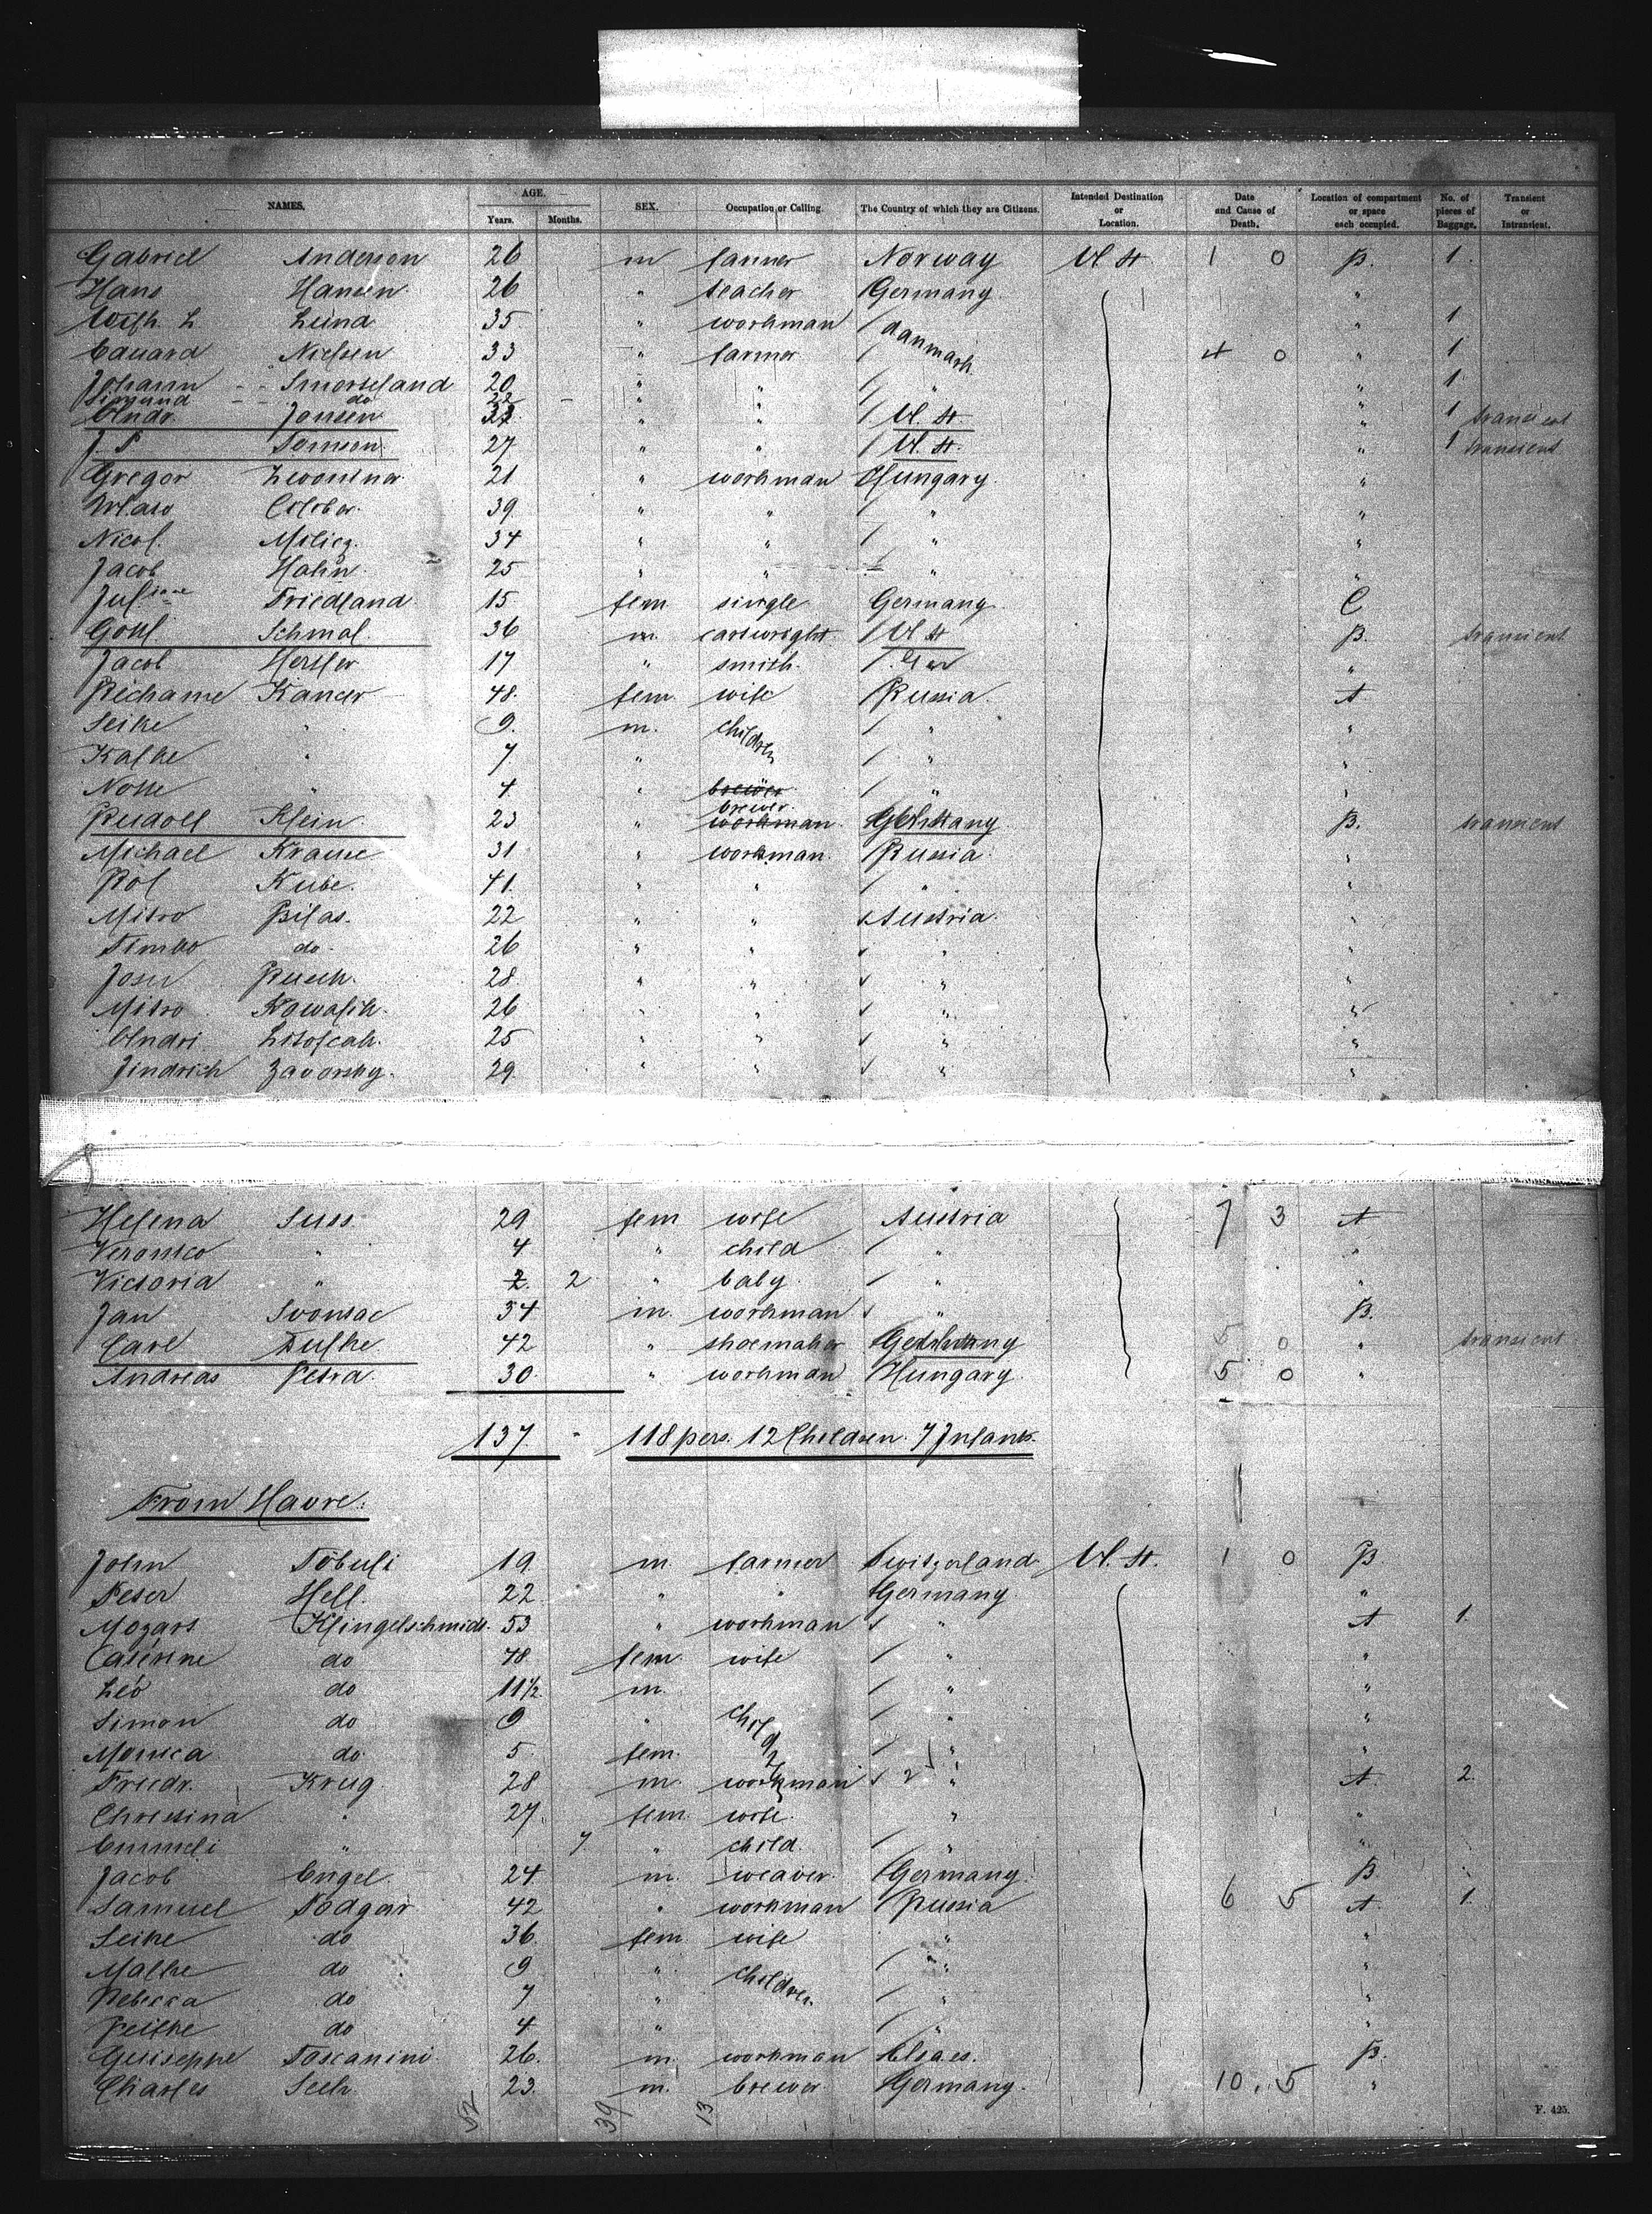 NAMES. AGE. Years. Months. SEX. Occupation or Calling. The Country of which they are Citizens. Intended Destination or Location. Date and Cause of Death. Location of compartment or space each occupied. No. of pieces of Baggage. Transient or Intransient.
Gabriel Anderson 26 m farmer Norway U St. 1 0 B. 1.
Hans Hansen 26 " teacher Germany "
Wilh. L Lund 35 " workman danmark " 1
Eduard Nielsen 33 " farmer 4 0 " 1
Johann 20 " " " " 1
do 22
Andr. Jansen " " U. St. " 1 transient
27 " " U. St. " 1 transient
Gregor 21 " workman Hungary "
39 " " " "
Nicol. 34 " " " "
Jacob Hahn 25 " " " "
Friedland 15 fem single Germany C
Gottl. Schmal. 36 m. cartwright U St B. transient
Jacob 17 " smith. Ger "
48. fem. wife Russia. A
Seike " 9. m. children " "
" 7 " " "
" 4 " brewer " "
Rudolf Klein 23 " brewer workman Germany B. transient
Michael Krause 31 " workman Russia "
Kube. 41. " " " "
Mitro Bilas. 22 " " Austria. "
do 26 " " " "
28 " " " "
Mitro 26 " " " "
Andri 25 " " " "
Jindrich Zavorsky. 29 " " " "
Helena Suss 29 fem wife Austria 7 3 A
" 4 " child " "
Victoria " 2 2 " baby " "
Jan m. workman " B.
Carl 42 " shoemaker Germany 5 0 " transient
Andreas Petra. 30. " workman Hungary. 5 0 "
137 - 118 pers. 12 Children. 7 Infants.
From Havre:
John 19. m farmer Switzerland U. St. 1 0 B
Peter Hell. 22 " " Germany "
Mozart Klingelschmidt. 53 " workman " A 1.
do 48. fem. wife " "
Leo do 11 1/2 m. " "
Simon do 9 " child " "
Monica do 5 fem. " "
Friedr. Krug 28 m. workman " A. 2.
Christina " 27. fem. wife. " "
" 7 " child. " "
Jacob Engel. 24 m. weaver. Germany. B.
Samuel Podgor 42 " workman Russia 6 5 A. 1.
Seike do 36 fem. wife " "
Malke do 9 " children " "
Rebecca do 7 " " "
do 4 " " "
Guiseppe Toscanini. 26. m. workman Elsaes. B.
Charles 23. m. brewer Germany. 10. 5 "
52 39 13
F. 425.